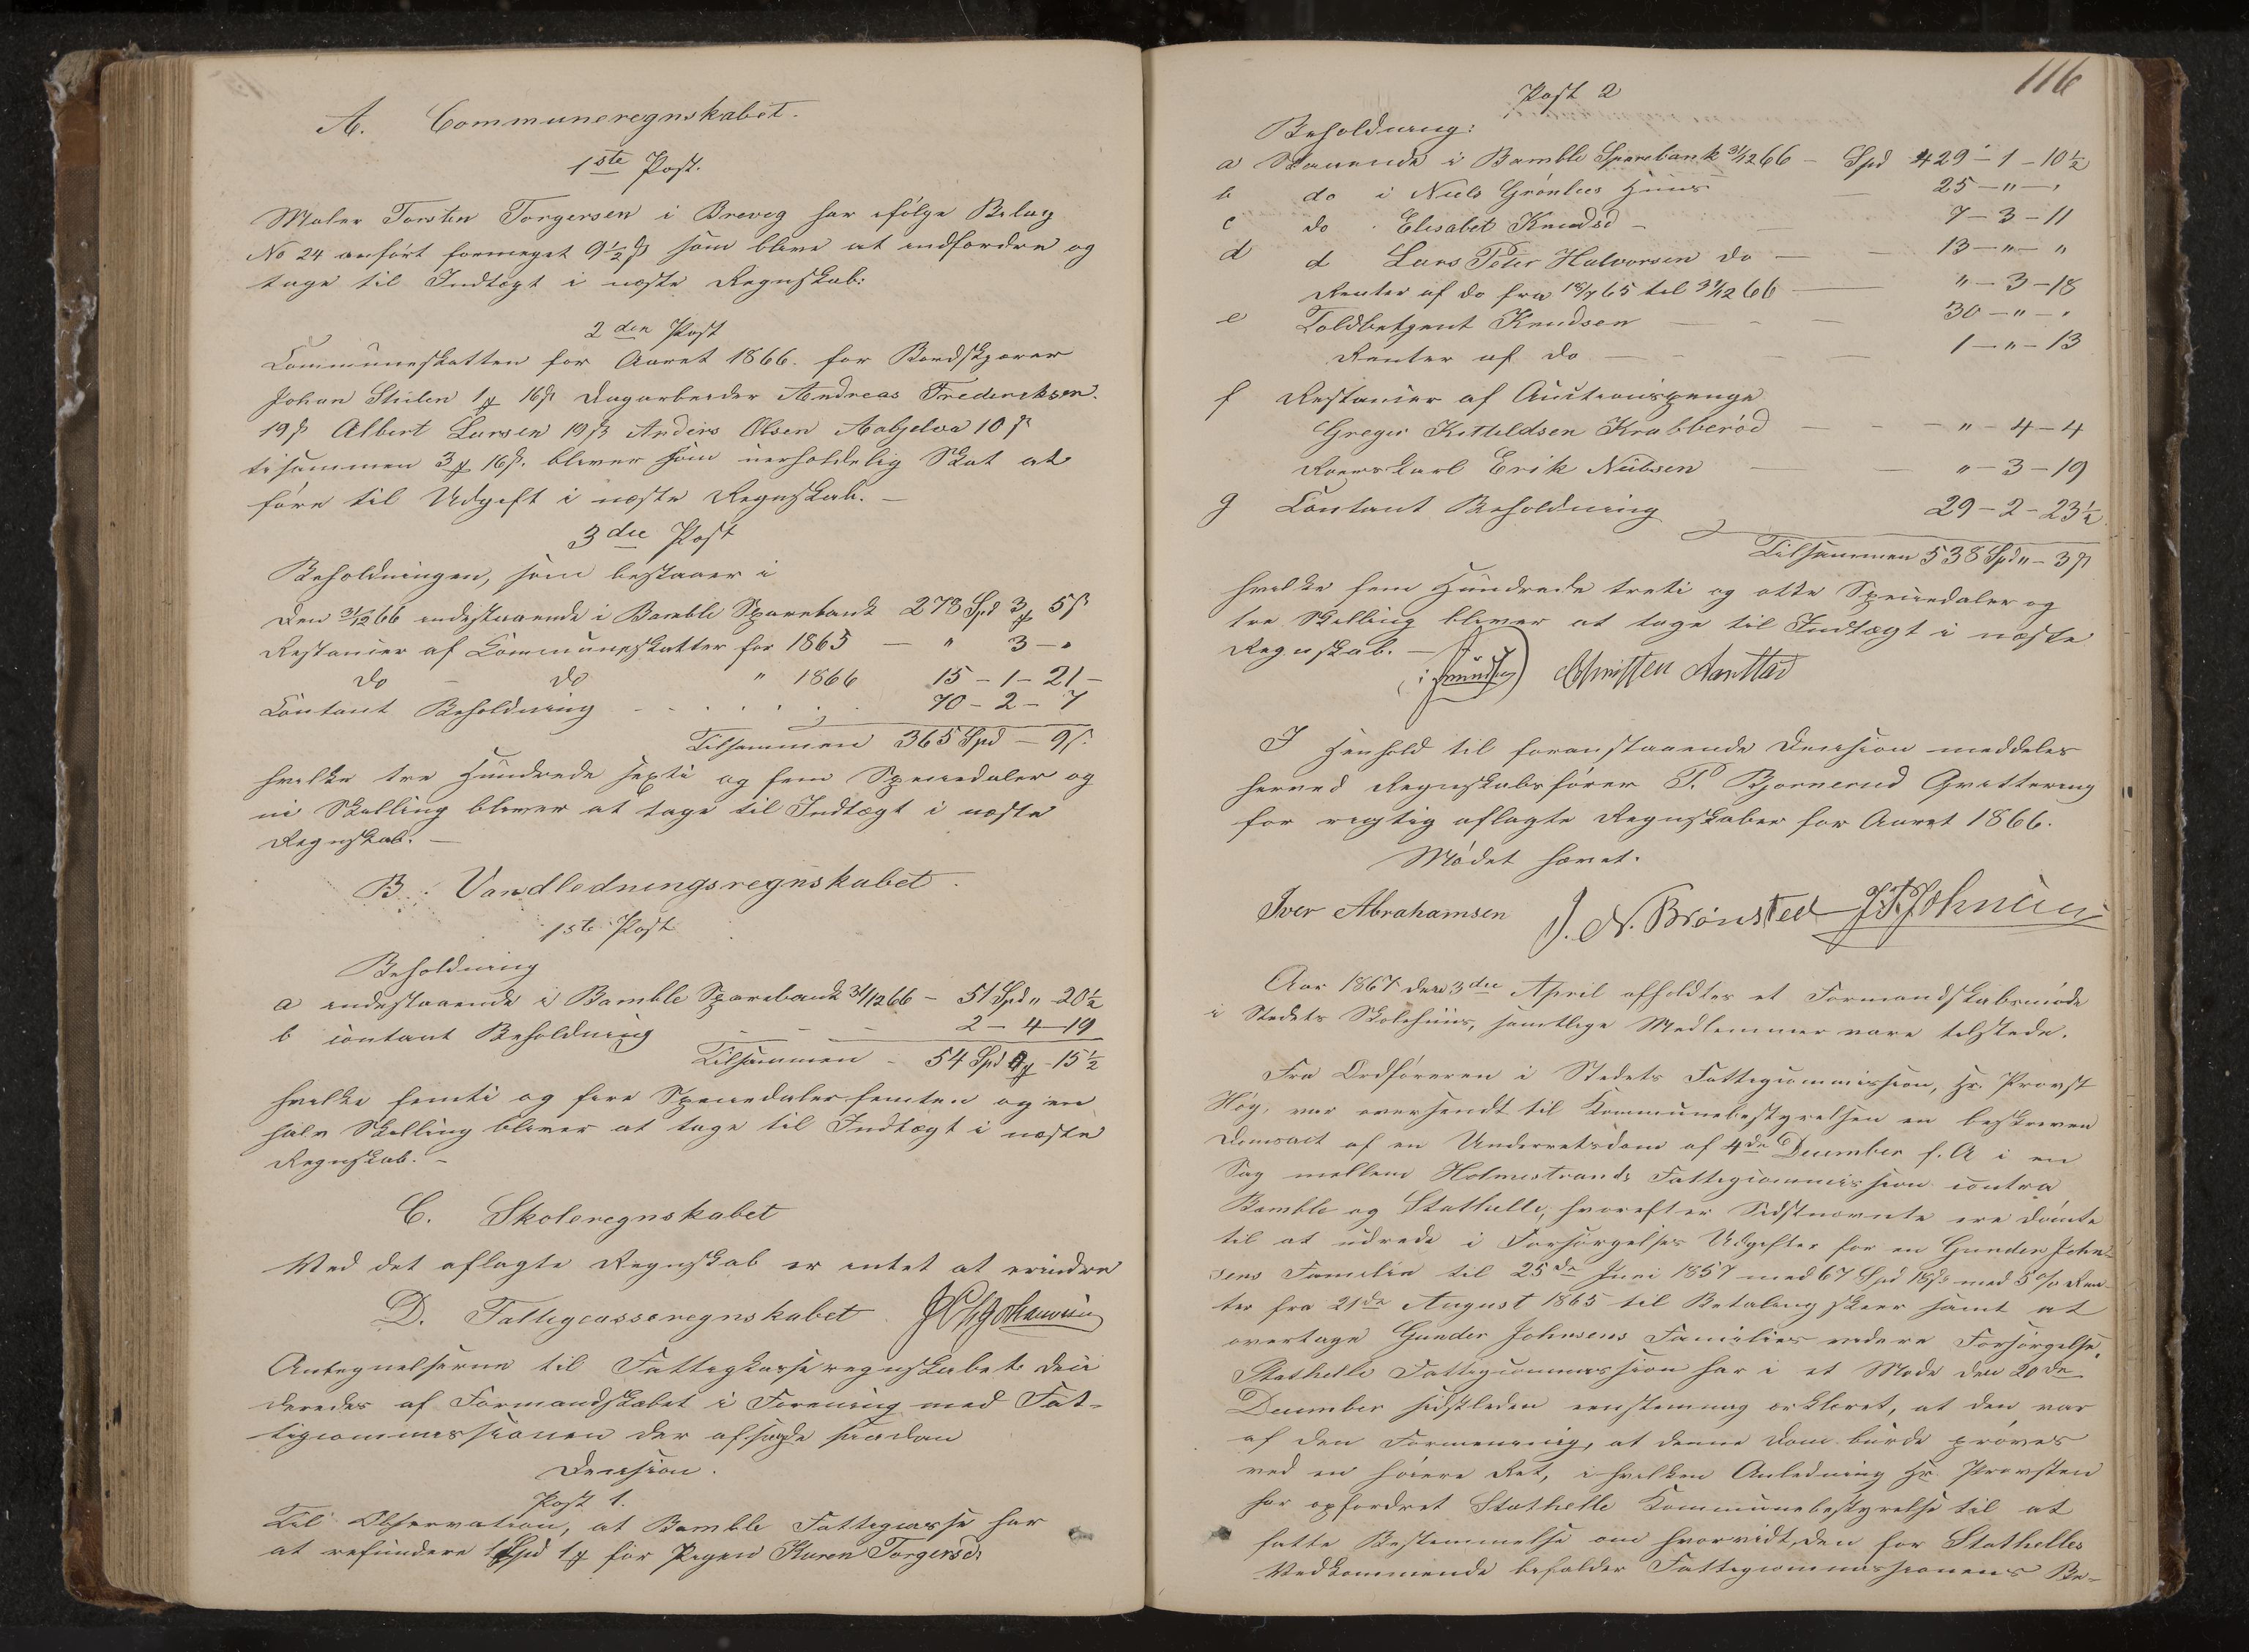 A. Communeregnskabet.
1ste Post.
Maler Torsten Torgersen i Brevig har ifølge Belag
No 24 anført formeget 9½ ß som blive at indfordre og
tage til Indtægt i næste Regnskab:
2den Post
Communeskatten for Aaret 1866. for Bordskjærer
Johan Stulen 1 16ß Dagarbeider Andreas Frederiksen.
19ß Albert Larsen 19ß Anders Olsen 10ß
tilsammen 3 16ß. bliver som uerholdelig Skat at
føre til Udgift i næste Regnskab. —
3die Post
Beholdningen, som bestaaer i
den 31/12 66 indestaaende i Bamble Sparebank 278 Spd 3 5ß
Restancer af Communeskatter for 1865 — " 3 — "
do — do " 1866 15 - 1 - 21 -
Contant Beholdning 70 - 2 - 7
Tilsammen 365 Spd — 9ß.
hvilke tre Hundrede sexti og fem Speciedaler og
ni Skilling bliver at tage til Indtægt i næste
Regnskab. —
B. Vandledningsregnskabet.
1ste Post
Beholdning
a indestaaende i Bamble Sparebank 31/12 66 - 51 Spd " 20½
b contant Beholdning — — — 2 - 4 - 19
Tilsammen - 54 Spd - 15½
hvilke femti og fire Speciedaler femten og en
halv Skilling bliver at tage til Indtægt i næste
Regnskab. -
C. Skoleregnskabet
Ved det aflagte Regnskab er intet at erindre
D. Fattigcasseregnskabet.
Antegnelserne til Fattigkasseregnskabet deci
deredes af Formandskabet i Forening med Fat-
tigcommissionen der afsagde saadan
Decision.
Post 1.
Til Observation, at Bamble Fattigcasse har
at refundere Spd 1 for Pigen Karen Torgersd.
116
Post 2
Beholdning:
a Staaende i Bamble Sparebank 31/12 66 — Spd 429 - 1 - 10½
b do i Niels Grønlies Huus — 25 — " — "
c do . Elisabet Knudsd — 7 — 3 — 11
d d Lars Peter Halvorsen do — 13 — " — "
Renter af do fra 18/7 65 til 31/12 66 — " — 3 — 18
e Toldbetjent Knudsen — 30 — " — "
Renter af do — 1 — " — 13
f Restancer af Auctionspenge
Greger Kittildsen Krabberød — " — 4 — 4
Roerskarl Erik Nilsen — " — 3 — 19
g Contant Beholdning 29 — 2 — 23½
Tilsammen 538 Spd " — 3ß
hvilke fem Hundrede treti og otte Speciedaler og
tre Skilling bliver at tage til Indtægt i næste
Regnskab. —
Christen
I Henhold til foranstaaende Decision meddeles
herved Regnskabsfører P. Bjornerud Qvittering
for rigtig aflagte Regnskaber for Aaret 1866.
Mødet hævet.
Iver Abrahamsen J. N. Brønsted
Aar 1867 den 3die April afholdtes et Formandskabsmøde
i Stedets Skolehuus, samtlige Medlemmer vare tilstede.
Fra Ordføreren i Stedets Fattigcommission, Hr. Provst
Høy, var oversendt til Kommunebestyrelsen en beskreven
Domsact af en Underretsdom af 4de December f. A i en
Sag mellem Holmestrands Fattigcommission contra
Bamble og Stathelle, hvorefter Sidstnævnte ere dømte
til at udrede i Forsørgelses Udgifter for en Gunder John-
sens Familie til 25de Juni 1857 med 67 Spd 18ß med 5 % Ren-
ter fra 21de August 1865 til Betaling skeer samt at
overtage Gunder Johnsens Families videre Forsørgelse.
Stathelle Fattigcommission har i et Møde den 20de
December sidstleden eenstemmig erklæret, at den var
af den Formening, at denne Dom burde prøves
ved en høiere Ret, i hvilken Anledning Hr. Provsten
har opfordret Stathelle Kommunebestyrelse til at
fatte Bestemmelse om hvorvidt den for Stathelles
Vedkommende bifalder Fattigcommissionens Be-